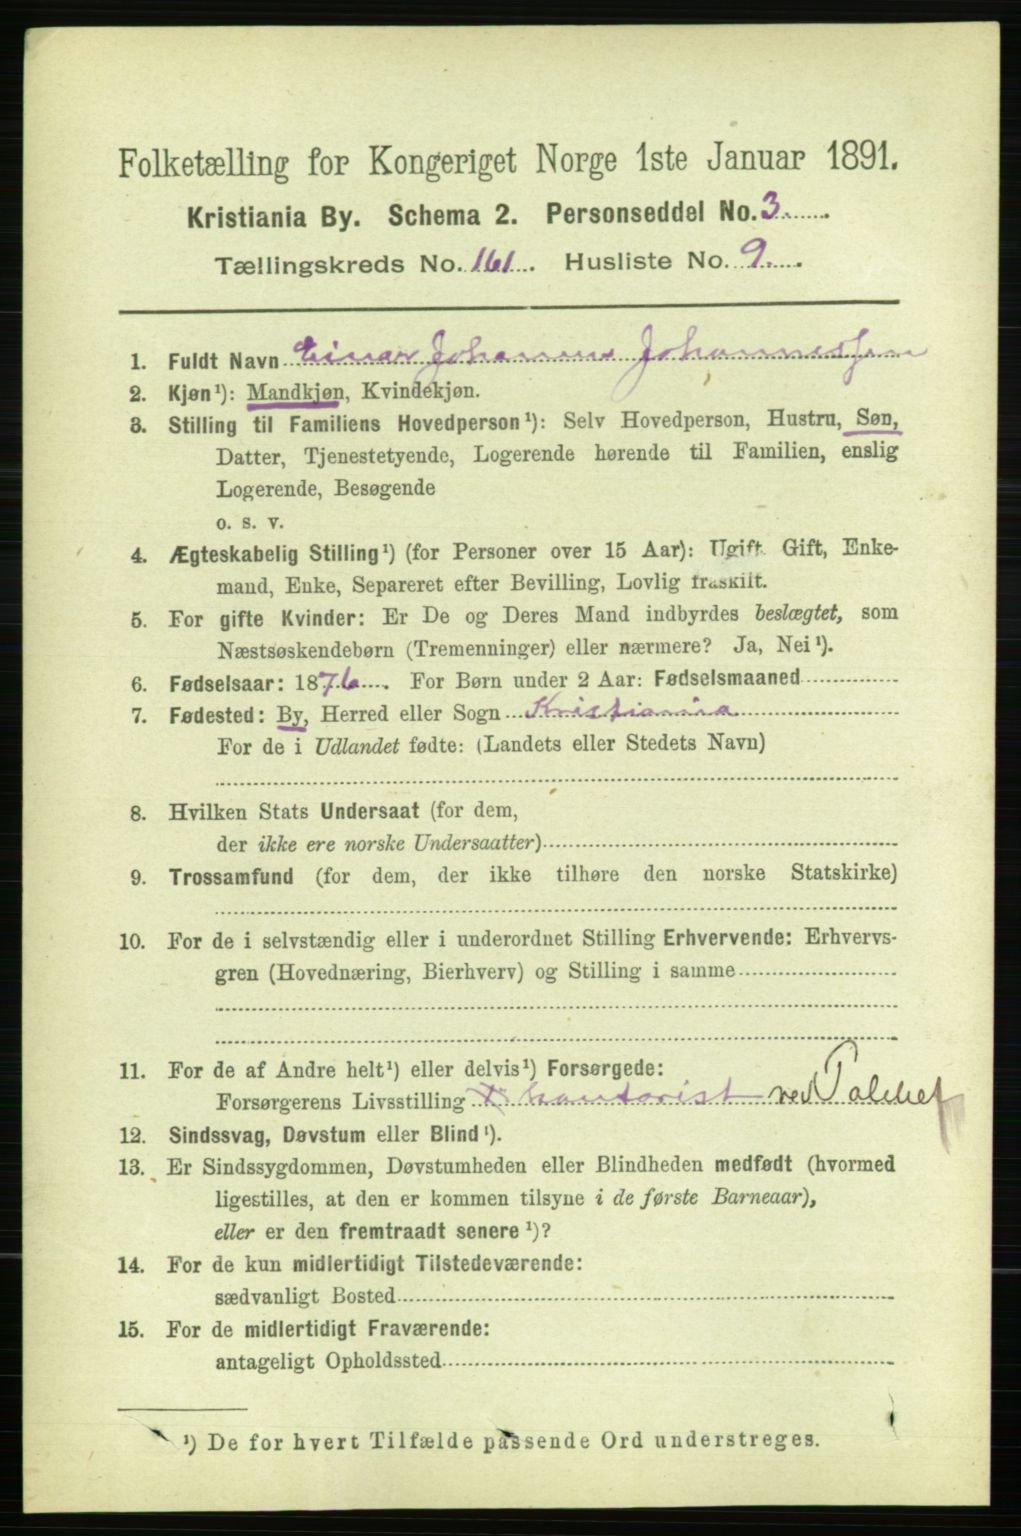 Folketælling for Kongeriget Norge 1ste Januar 1891.
Kristiania By. Schema 2. Personseddel No. 3.
Tællingskreds No. 161. Husliste No. 9.
1. Fuldt Navn Einar Johannes Johannesen
2. Kjøn¹): Mandkjøn, Kvindekjøn.
3. Stilling til Familiens Hovedperson¹): Selv Hovedperson, Hustru, Søn,
Datter, Tjenestetyende, Logerende hørende til Familien, enslig
Logerende, Besøgende
o. s. v.
4. Ægteskabelig Stilling¹) (for Personer over 15 Aar): Ugift, Gift, Enke-
mand, Enke, Separeret efter Bevilling, Lovlig fraskilt.
5. For gifte Kvinder: Er De og Deres Mand indbyrdes beslægtet, som
Næstsøskendebørn (Tremenninger) eller nærmere? Ja, Nei¹).
6. Fødselsaar: 1876. For Børn under 2 Aar: Fødselsmaaned
7. Fødested: By, Herred eller Sogn Kristiania
For de i Udlandet fødte: (Landets eller Stedets Navn)
8. Hvilken Stats Undersaat (for dem,
der ikke ere norske Undersaatter)
9. Trossamfund (for dem, der ikke tilhøre den norske Statskirke)
10. For de i selvstændig eller i underordnet Stilling Erhvervende: Erhvervs-
gren (Hovednæring, Bierhverv) og Stilling i samme
11. For de af Andre helt¹) eller delvis¹) Forsørgede:
Forsørgerens Livsstilling kontorist ved
12. Sindssvag, Døvstum eller Blind¹).
13. Er Sindssygdommen, Døvstumheden eller Blindheden medfødt (hvormed
ligestilles, at den er kommen tilsyne i de første Barneaar),
eller er den fremtraadt senere¹)?
14. For de kun midlertidigt Tilstedeværende:
sædvanligt Bosted
15. For de midlertidigt Fraværende:
antageligt Opholdssted
¹) De for hvert Tilfælde passende Ord understreges.